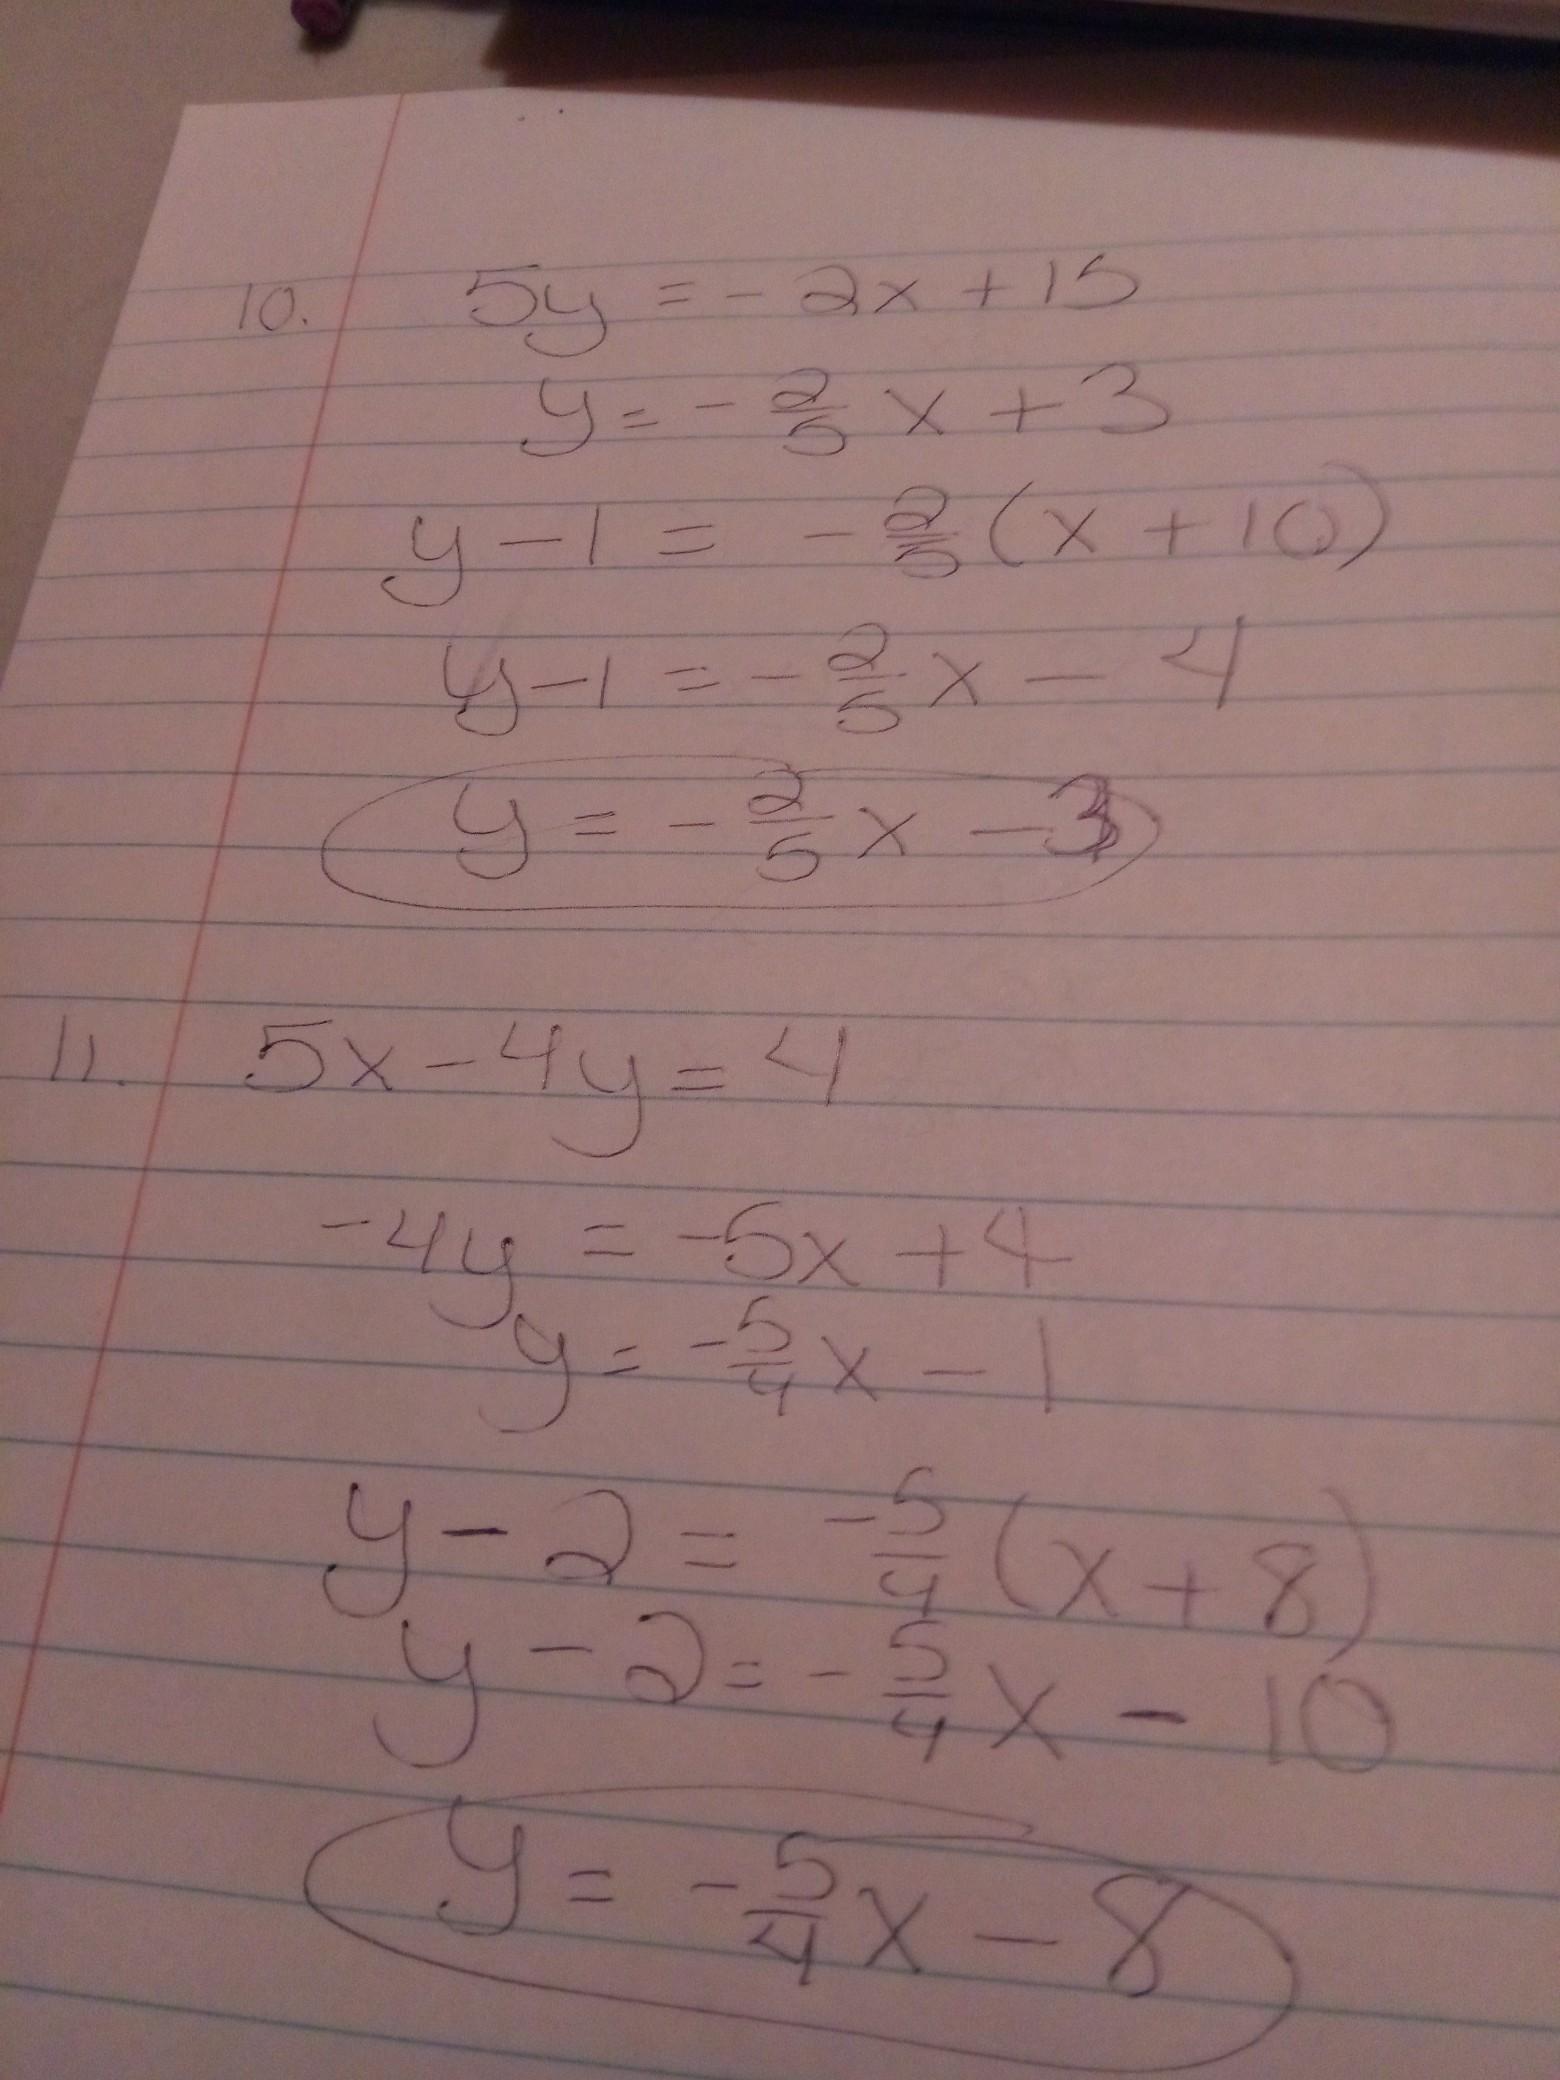 10. 5y = - 2x + 15
y = - 2/5 x + 3
y - 1 = - 2/5 (x + 10)
y - 1 = - 2/5 x - 4
y = - 2/5 x - 3
11. 5x - 4y = 4
-4y = -5x + 4
y = -5/4 x - 1
y - 2 = -5/4 (x + 8)
y - 2 = - 5/4 x - 10
y = - 5/4 x - 8